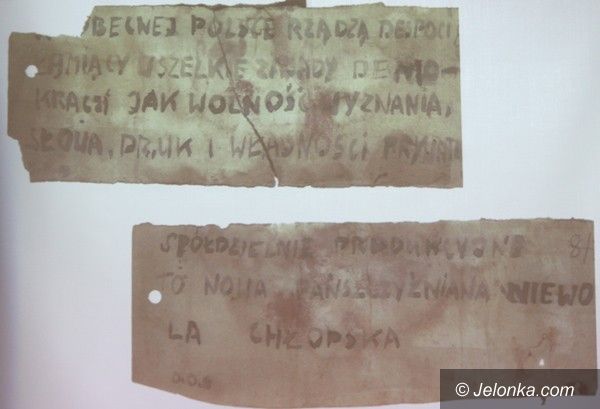 W OBECNEJ POLSCE RZĄDZĄ DESPOCI
ŁAMIĄCY WSZELKIE ZASADY DEMO-
KRACJI JAK WOLNOŚĆ WYZNANIA,
SŁOWA, DRUK I WŁASNOŚCI PRYWATN
SPÓŁDZIELNIE PRODUKCYJNE
TO NOWA PAŃSZCZYŹNIANA NIEWO
LA CHŁOPSKA
© Jelonka.com